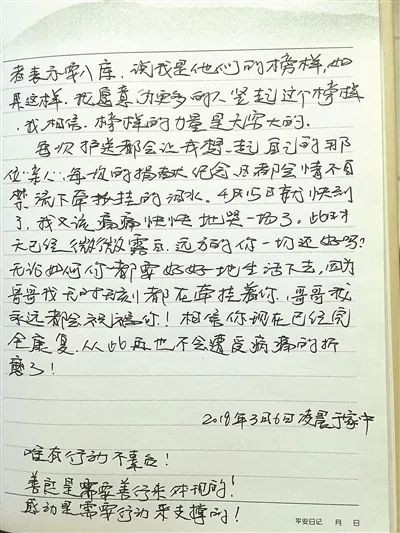 者表示要入库，说我是他们的榜样，如
果这样，我愿意为更多的人竖起这个榜样
，我相信，榜样的力量是无穷大的。
每次护送都会让我想起自己的那
位"亲人"，每次的捐献纪念日都会情不自
禁流下牵挂的泪水。4月15日就快到
了，我又该痛痛快快地哭一场了。此时
天已经微微露亮，远方的你一切还好吗？
无论如何你都要好好地生活下去，因为
哥哥我无时无刻都在牵挂着你，哥哥我
永远都会祝福你！相信你现在已经完
全康复，从此再也不会遭受病痛的折
磨了！
2018年3月6日凌晨于家中
唯有行动不辜负！
善良是需要善行来体现的！
感动是需要行动来支撑的！
平安日记 月 日